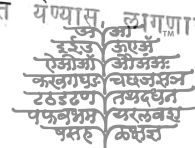 येण्यास लागणा
™
अ आ
इ ई उ ऊ ए ॲ
ऐ ओ ऑ औ अं अः
क ख ग घ ङ च छ ज झ ञ
ट ठ ड ढ ण त थ द ध न
प फ ब भ म य र ल व श
ष स ह ळ क्ष ज्ञ